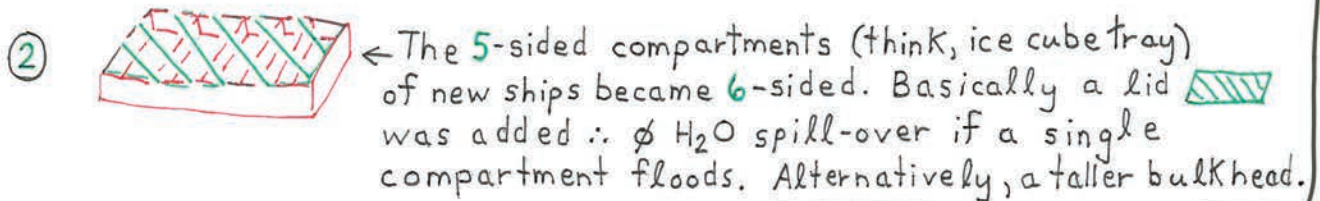 ② ← The 5-sided compartments (think, ice cube tray)
of new ships became 6-sided. Basically a lid
was added ∴ ∅ H₂O spill-over if a single
compartment floods. Alternatively, a taller bulkhead.